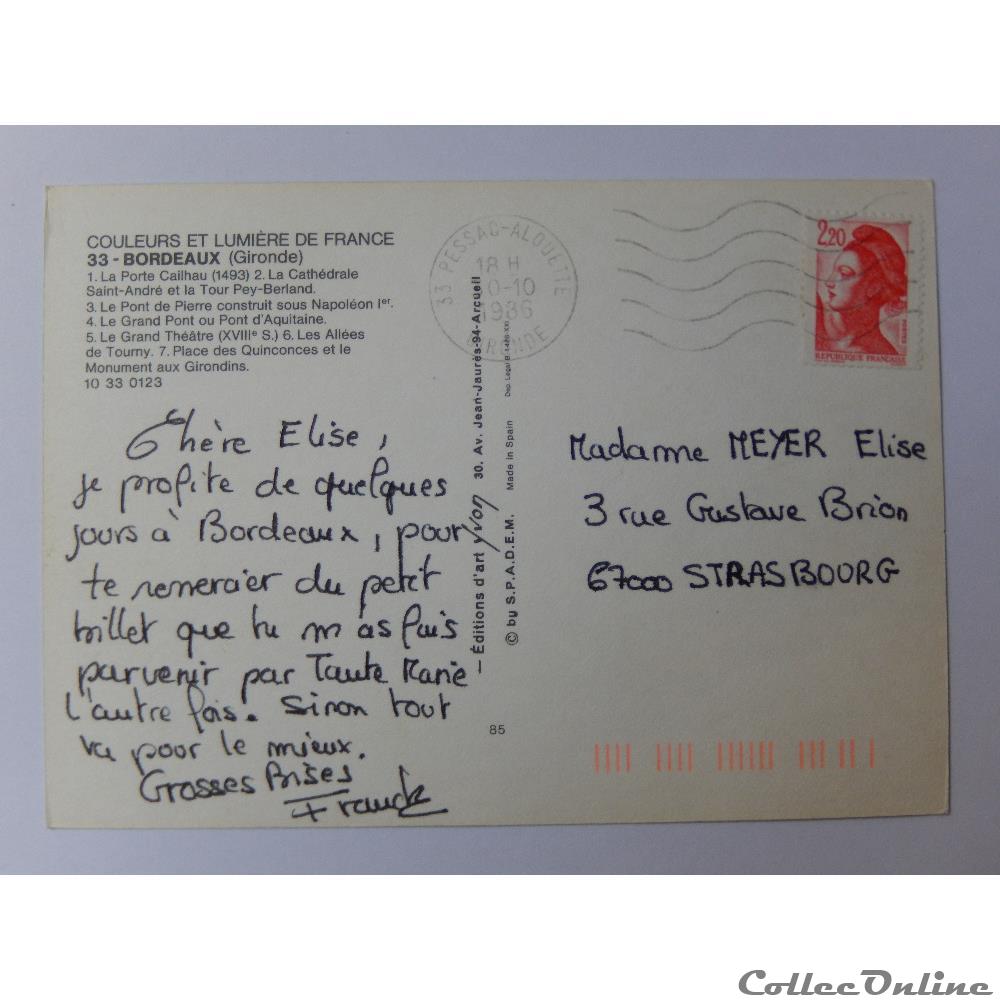 COULEURS ET LUMIÈRE DE FRANCE
33 - BORDEAUX (Gironde)
1. La Porte Cailhau (1493) 2. La Cathédrale
Saint-André et la Tour Pey-Berland.
3. Le Pont de Pierre construit sous Napoléon Ier.
4. Le Grand Pont ou Pont d'Aquitaine.
5. Le Grand Théâtre (XVIIIe S.) 6. Les Allées
de Tourny. 7. Place des Quinconces et le
Monument aux Girondins.
10 33 0123
Chère Elise,
je profite de quelques
jours à Bordeaux, pour
te remercier du petit
billet que tu m as fais
parvenir par Tante Marie
l'autre fois. Sinon tout
va pour le mieux.
Grosses Bises
Franck
33 PESSAC-ALOUETTE
18 H
10-10
1986
GIRONDE
— Éditions d'art yvon 30. Av. Jean-Jaurès-94-Arcueil
© by S.P.A.D.E.M. Made in Spain Dep. Legal B.
85
2,20
REPUBLIQUE FRANÇAISE
Madame MEYER Elise
3 rue Gustave Brion
67000 STRASBOURG
CollecOnline